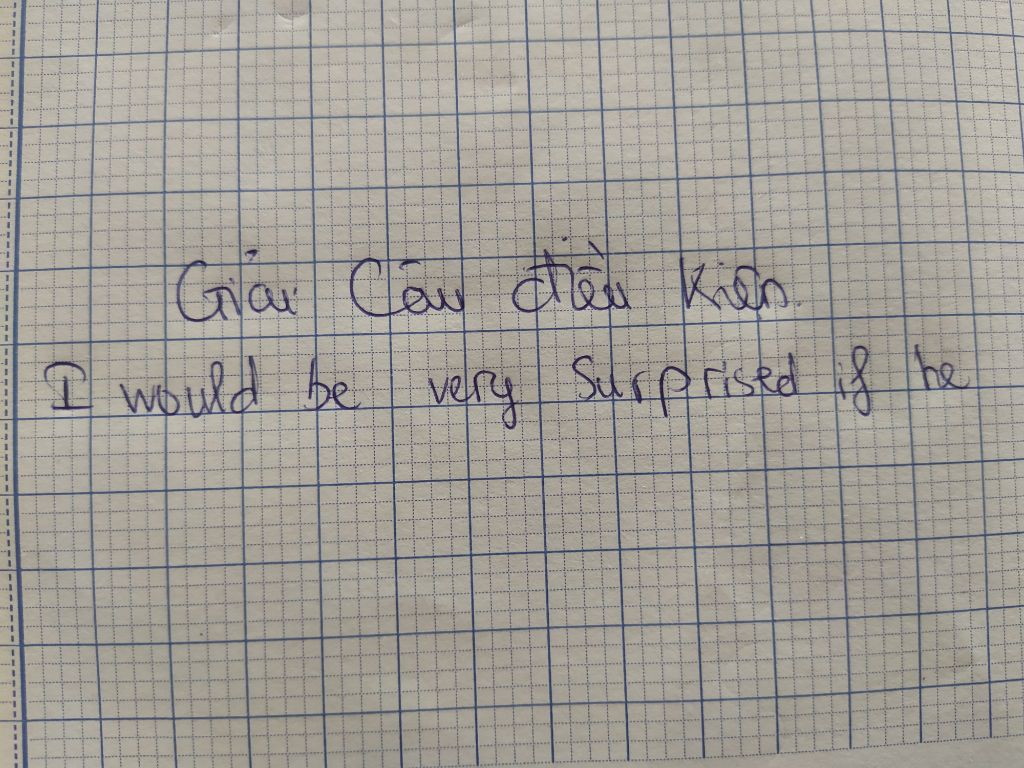 Giải Câu điều kiện
I would be very surprised if he